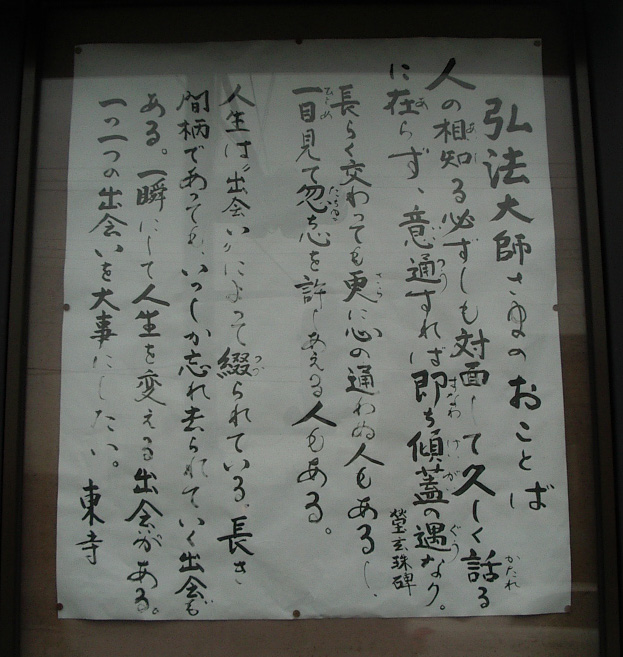 弘法大師さまのおことば
人の相知る必ずしも対面して久しく話る
に在らず、意通ずれば即ち傾蓋の遇なり。
瑩玄珠碑
長らく交わっても更に心の通わぬ人もあるし、
一目見て忽ち心を許しあえる人もある。
人生は〝出会い〟によって綴られている。長き
間柄であっても、いつしか忘れ去られていく出会も
ある。一瞬にして人生を変える出会がある。
一つ一つの出会いを大事にしたい。
東寺